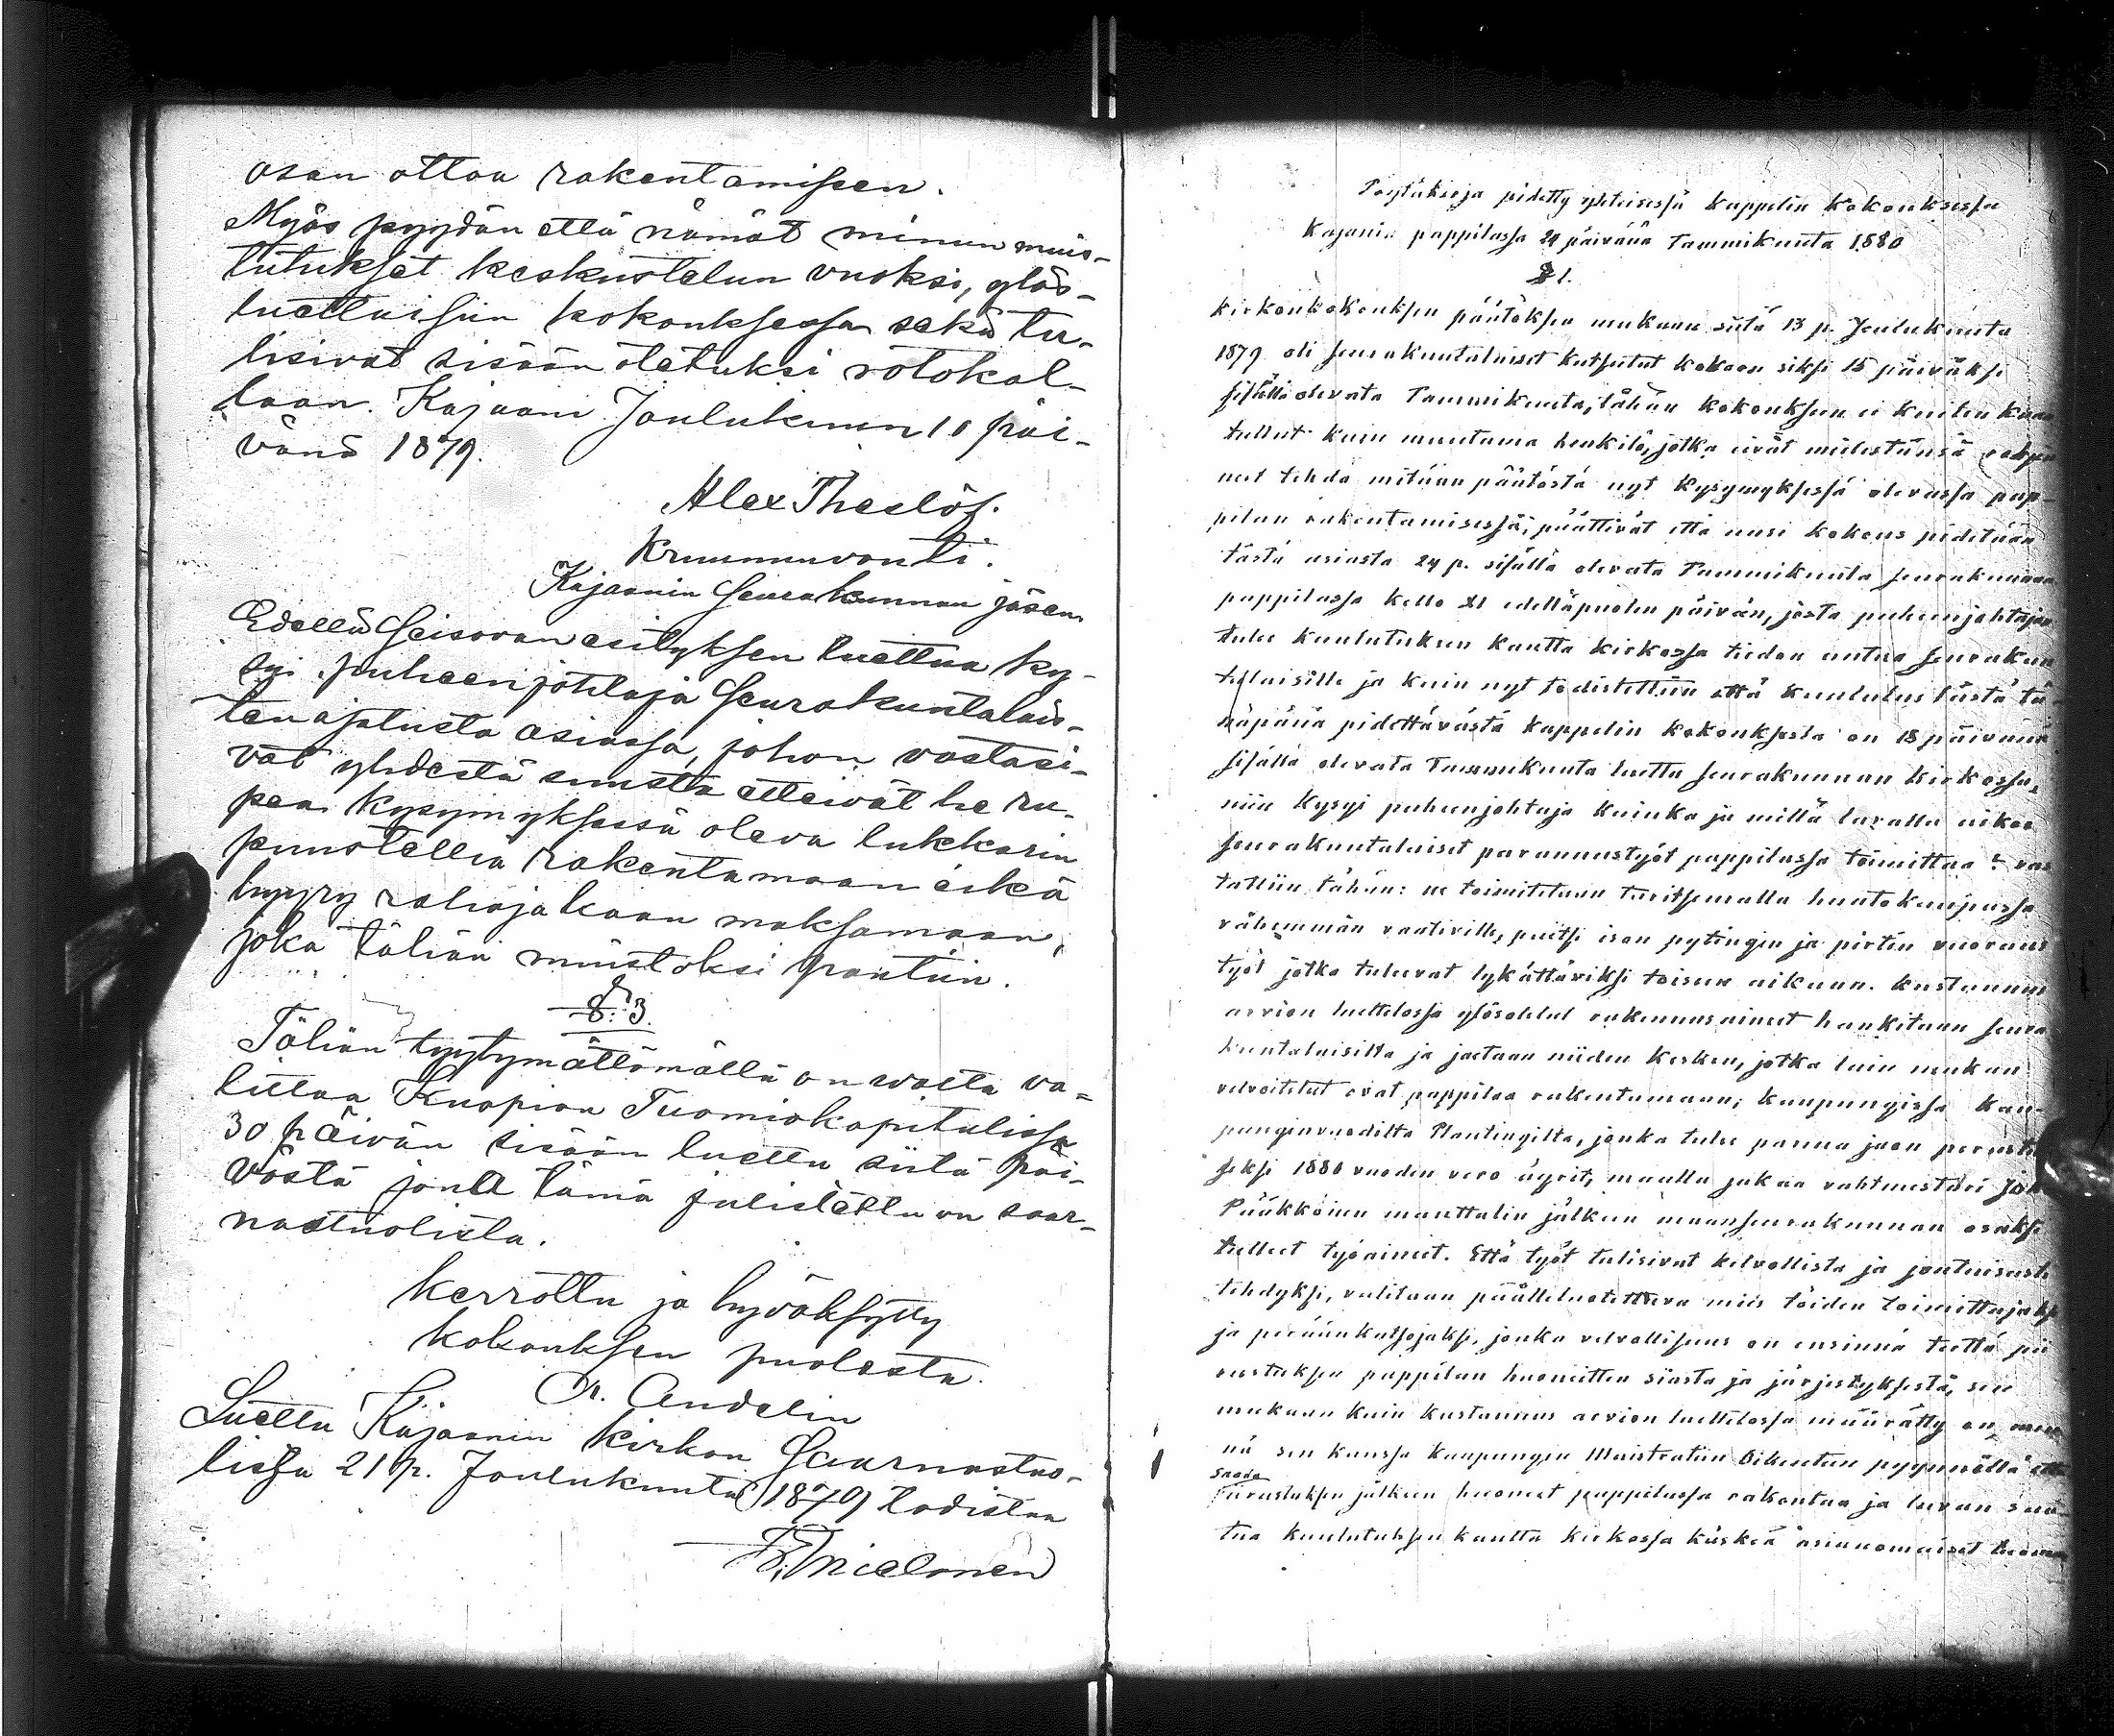 osan ottaa rakentamiseen.
Myös pyydän että nämät minun muis-
tutukset keskustelun vuoksi, ylös-
luettaisiin kokouksessa sekä tu-
lisivat sisään otetuksi
laan. Kajaani Joulukuun 10 päi-
vänä 1879.
Alex Theslöf.
Kruununvouti.
Kajaanin Seurakunnan jäsen
Edellä Seisovan esityksen luettua ky-
syi puheenjohtaja Seurakuntalais-
ten ajatusta asiassa, johon vastasi-
vat yhdestä suusta etteivät he ru-
pea kysymyksessä oleva lukkarin
puustellia rakentamaan eikä
hyyry rahojakaan maksamaan,
joka tähän muistoksi pantiin.
§. 3.
Tähän tyytymättömällä on valta va-
littaa Kuopion Tuomiokapitulissa
30 päivän sisään luettu siitä päi-
västä jona tämä julistettu on saar-
nastuolista.
kerrottu ja hyväksytty
kokouksen puolesta.
A. Andelin
Luettu Kajaanin kirkon Saarnastuo-
lissa 21 p. Joulukuuta 1879 todistaa
Mielonen
Pöytäkirja pidetty yhteisessä kappelin kokouksessa
Kajanin pappilassa 24 päivänä Tammikuuta 1880
§ 1.
kirkonkokouksen päätöksen mukaan siitä 13 p. Joulukuuta
1879 oli seurakuntalaiset kutsutut kokoon siksi 15 päiväksi
sisällä olevata Tammikuuta, tähän kokouksen ei kuiten kaan
tullut kuin muutama henkilö, jotka eivät mielestänsä
neet tehdä mitään päätöstä nyt kysymyksessä olevassa pap-
pilan rakentamisessa; päättivät että uusi kokous pidetään
tästä asiasta 24 p. sisällä olevata Tammikuuta seurakunnan
pappilassa kello 11 edelläpuolen päivän, josta puheenjohtajan
tulee kuulutuksen kautta kirkossa tiedon antaa seurakun
telaisille ja kuin nyt todistettiin että kuulutus tästä tä-
näpänä pidettävästä kappelin kokouksesta on 18 päivänä
sisällä olevata Tammikuuta luettu seurakunnan kirkossa,
niin kysyi puheenjohtaja kuinka ja millä tavalla aikoo
seurakuntalaiset parannustyöt pappilassa toimittaa? vas
tattiin tähän: ne toimitetaan taritsemalla huutokaupassa
vähemmän vaativille, paitsi ison pytingin ja pirtin vuoraus
työt jotka tulevat lykättäviksi toiseen aikaan. Kustannus
arvion luettelossa ylösotetut rakennusaineet hankitaan seura
kuntalaisilta ja jaetaan niiden kesken, jotka lain mukaan
velvoitetut ovat pappilaa rakentamaan; kaupungissa kau-
punginvoudilta Plantingilta, jonka tulee panna jaon perustu
seksi 1880 vuoden vero äyrit, maalla jakaa vahtmestari Joh
Pääkköinen manttalin jälkeen maanseurakunnan osaksi
tulleet työaineet. Että työt tulisivat kelvollista ja jontuisasti
tehdyksi, valitaan päälleluotettava mies töiden toimittajaksi
ja peräänkatsojaksi, jonka velvollisuus on ensinnä teettä pii
rustuksen pappilan huoneitten siasta ja järjestyksestä, sen
mukaan kuin kustannus arvion luettelossa määrätty on,
nä sen kanssa kaupungin Maistratiin Oikeuteen pyynnöllä että
saada
piirustuksen jälkeen huoneet pappilassa rakentaa ja luvan saa-
tua kuulutuksen kautta kirkossa käskeä asianomaiset